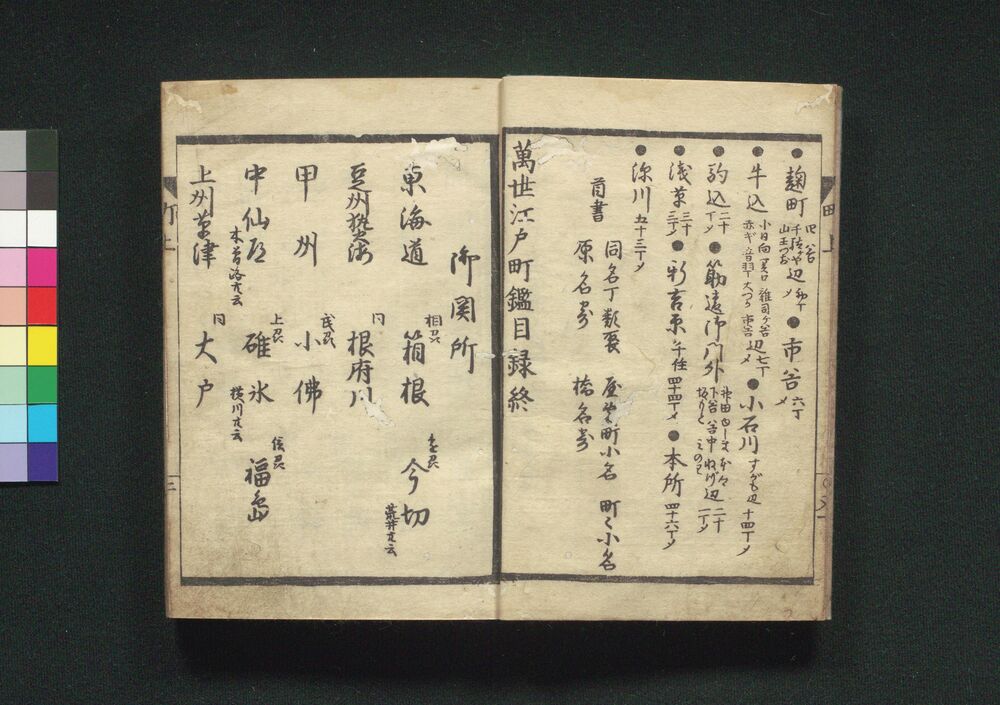 ●麹町 四谷 千駄ヶ谷辺 山王つゞき 初丁メ ●市谷 六丁メ
●牛込 小日向 関口 雑司ヶ谷 赤ギ 音羽丁 大つか 市谷辺 七丁メ ●小石川 すがも辺 十四丁メ
●駒込 二十丁メ ●筋違御門外 下谷 谷中 ねぎし辺 二十一丁メ
●浅草 三十三丁メ ●新吉原 千住 四十四丁メ ●本所 四十六丁メ
●深川 五十三丁メ
首書 同名丁数寄 屋敷町小名 町々小名
原名寄 橋名寄
萬世江戸町鑑目録終
御関所
東海道 相州 箱根 遠州 今切 荒井共云
豆州熱海 同 根府川
甲州 武州 小佛
中仙道 木曽路共云 上州 碓氷 横川共云 信州 福島
上州草津 同 大戸
町上